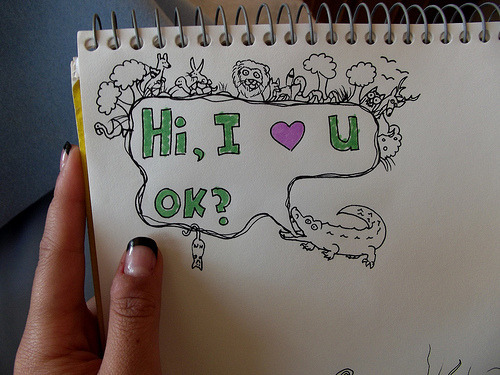 Hi, I ♥ U
OK?